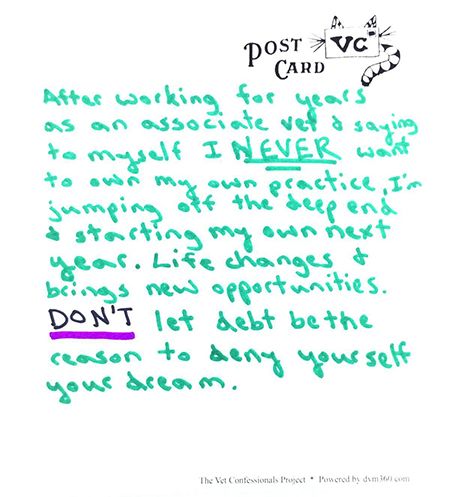 POST
CARD
VC
After working for years
as an associate vet & saying
to myself I NEVER want
to own my own practice, I'm
jumping off the deep end
& starting my own next
year. Life changes &
brings new opportunities.
DON'T let debt be the
reason to deny yourself
your dream.
The Vet Confessionals Project * Powered by dvm360.com